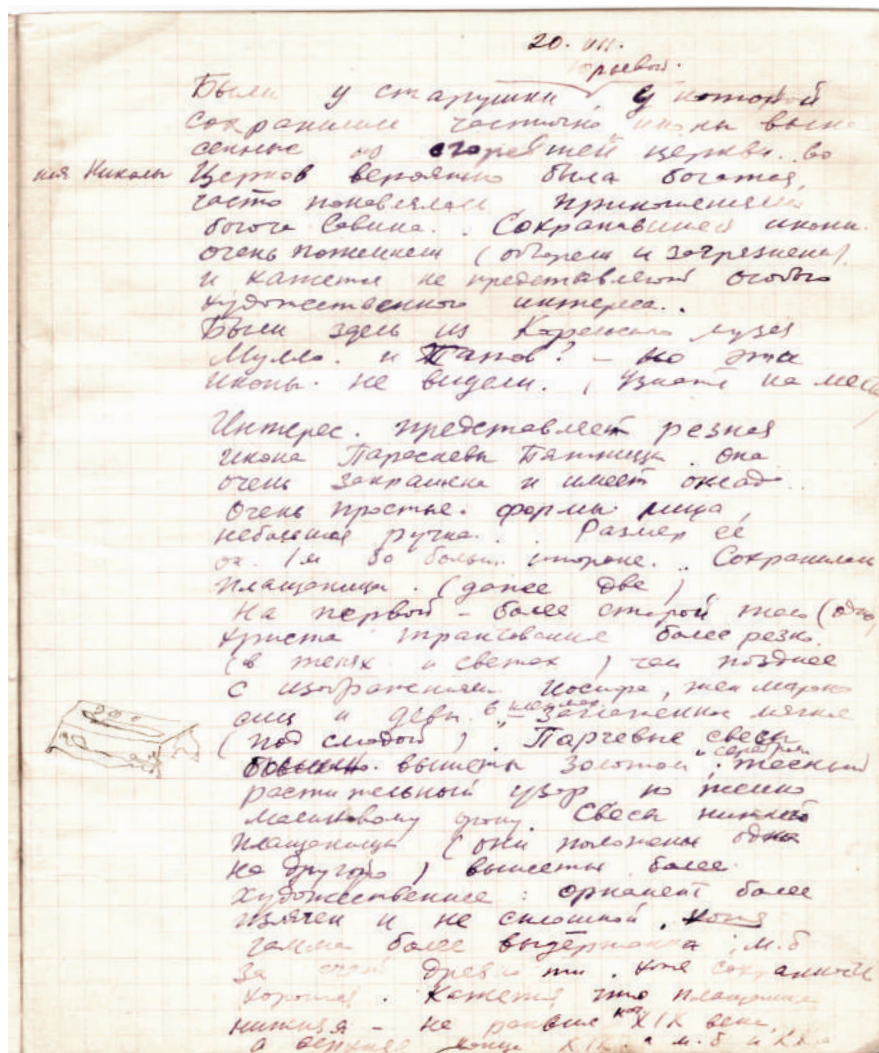 20. VII.
Юрьевой.
Были у старушки у которой
сохранились частично иконы выне
сенные из сгоревшей церкви во
имя Николы
Церков вероятно была богатая,
часто поновлялась приношениями
богача Савина. Сохранившиеся иконы
очень (обгорели и загрязнены)
и кажется не представляют особого
художественного интереса.
Были здесь из Карельского музея
Мулло. и Тапов? – но эти
иконы не видели. (Узнать на месте)
Интерес. представляет резная
икона Параскевы Пятницы. она
очень закрашена и имеет оклад.
Очень простые формы лица,
небольшая ручка. Размер её
ок. 1м по больш. стороне. Сохранились
плащаницы. (даже две)
На первой – более старой тело (одно)
Христа трактование более резко
(в тенях и светах) чем позднее
с изображением Иосифа, жен мироно
сиц и девы. в клеймах мягче
(под слюдой). Парчевые свесы
вышиты золотом и серебром, тесный
растительный узор по темно
малиновому фону. Свесы нижней
плащаницы (они положены одна
на другую) вышиты более
художественнее: орнамент более
изящен и не сплошной, хотя
гамма более выдержанна, м.б
за счёт древности. хотя сохранность
хорошая. Кажется что плащаница
нижняя – не раньше нач XIX века,
а верхняя конца XIX. а м.б и XX в